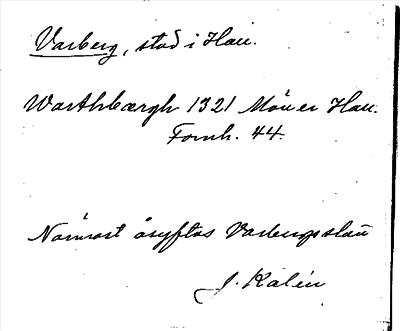 Varberg, stad i Hall.
Warthbærgh 1321 Möller Hall.
Fornh. 44.
Närmast åsyftas Varbergs slott
J. Kalén